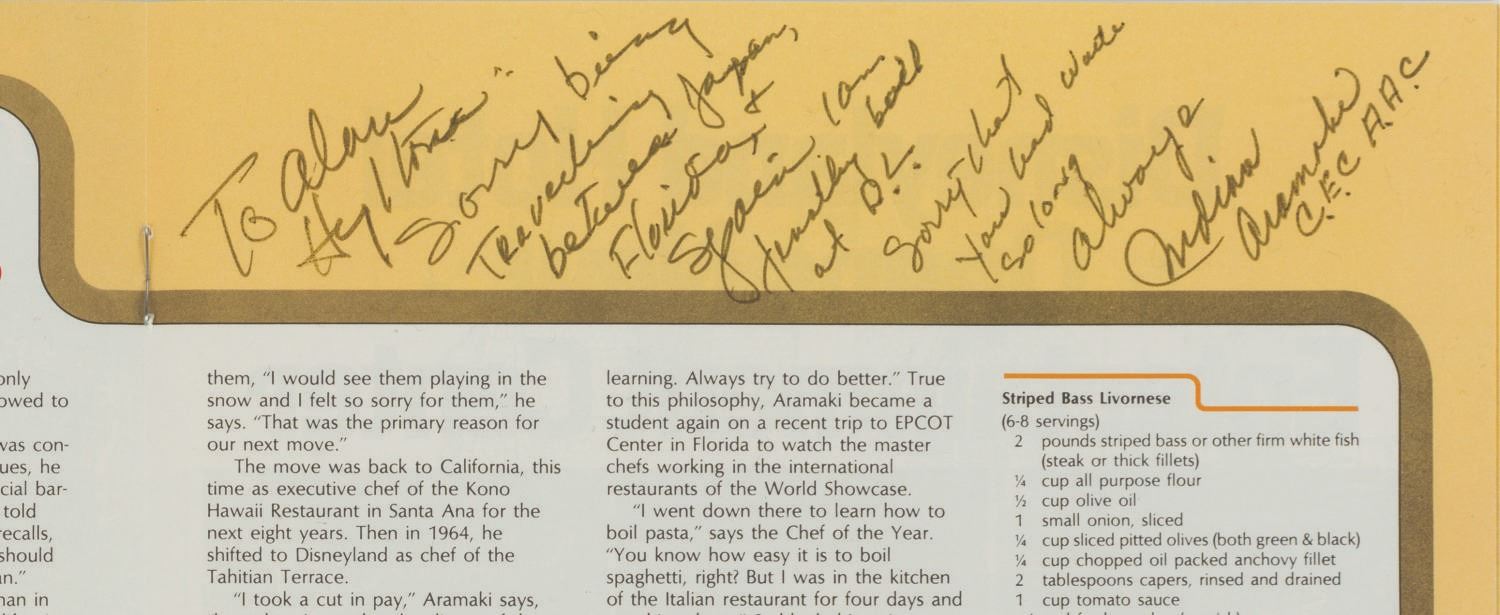 To Alan
Hylton"
Sorry being
Traveling
between Japan,
Florida, +
Spain I am
finally back
at D.L.
Sorry that
You had wait
so long
Always
Aramaki
C.E.C A.A.C
only
owed to
was con-
ues, he
cial bar-
told
recalls,
should
an."
man in
them, “I would see them playing in the
snow and I felt so sorry for them,” he
says. “That was the primary reason for
our next move.”
The move was back to California, this
time as executive chef of the Kono
Hawaii Restaurant in Santa Ana for the
next eight years. Then in 1964, he
shifted to Disneyland as chef of the
Tahitian Terrace.
“I took a cut in pay,” Aramaki says,
learning. Always try to do better.” True
to this philosophy, Aramaki became a
student again on a recent trip to EPCOT
Center in Florida to watch the master
chefs working in the international
restaurants of the World Showcase.
“I went down there to learn how to
boil pasta,” says the Chef of the Year.
“You know how easy it is to boil
spaghetti, right? But I was in the kitchen
of the Italian restaurant for four days and
Striped Bass Livornese
(6-8 servings)
2 pounds striped bass or other firm white fish
(steak or thick fillets)
¼ cup all purpose flour
½ cup olive oil
1 small onion, sliced
¼ cup sliced pitted olives (both green & black)
¼ cup chopped oil packed anchovy fillet
2 tablespoons capers, rinsed and drained
1 cup tomato sauce